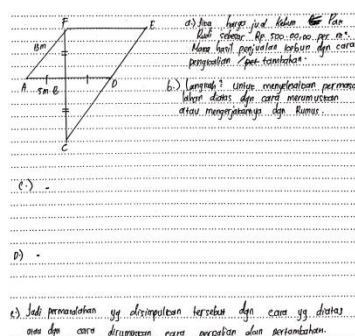 F E
8m
A 5m B D
C
a.) Jika harga jual kebun Pak
Rudi sebesar Rp. 500.00,00 per m².
Mana hasil penjualan kebun dgn cara
pengalian / pertambahan.
b.) Langkah² untuk menyelesaikan permasa
lahan diatas dgn cara merumuskan
atau mengerjakannya dgn Rumus.
c.) -
D) -
e.) Jadi permasalahan yg disimpulkan tersebut dgn cara yg diatas
dgn cara dirumuskan cara perkalian pertambahan.